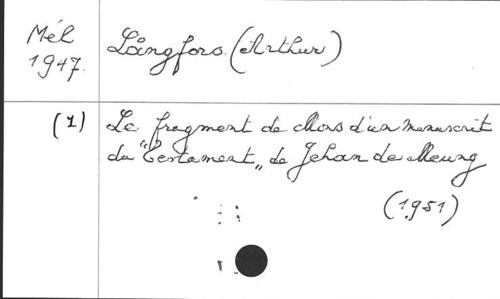 Mél
1947.
Långfors (Arthur)
(1) Le fragment de Mons d'un manuscrit
du "Testament" de Jehan de Meung
(1951)